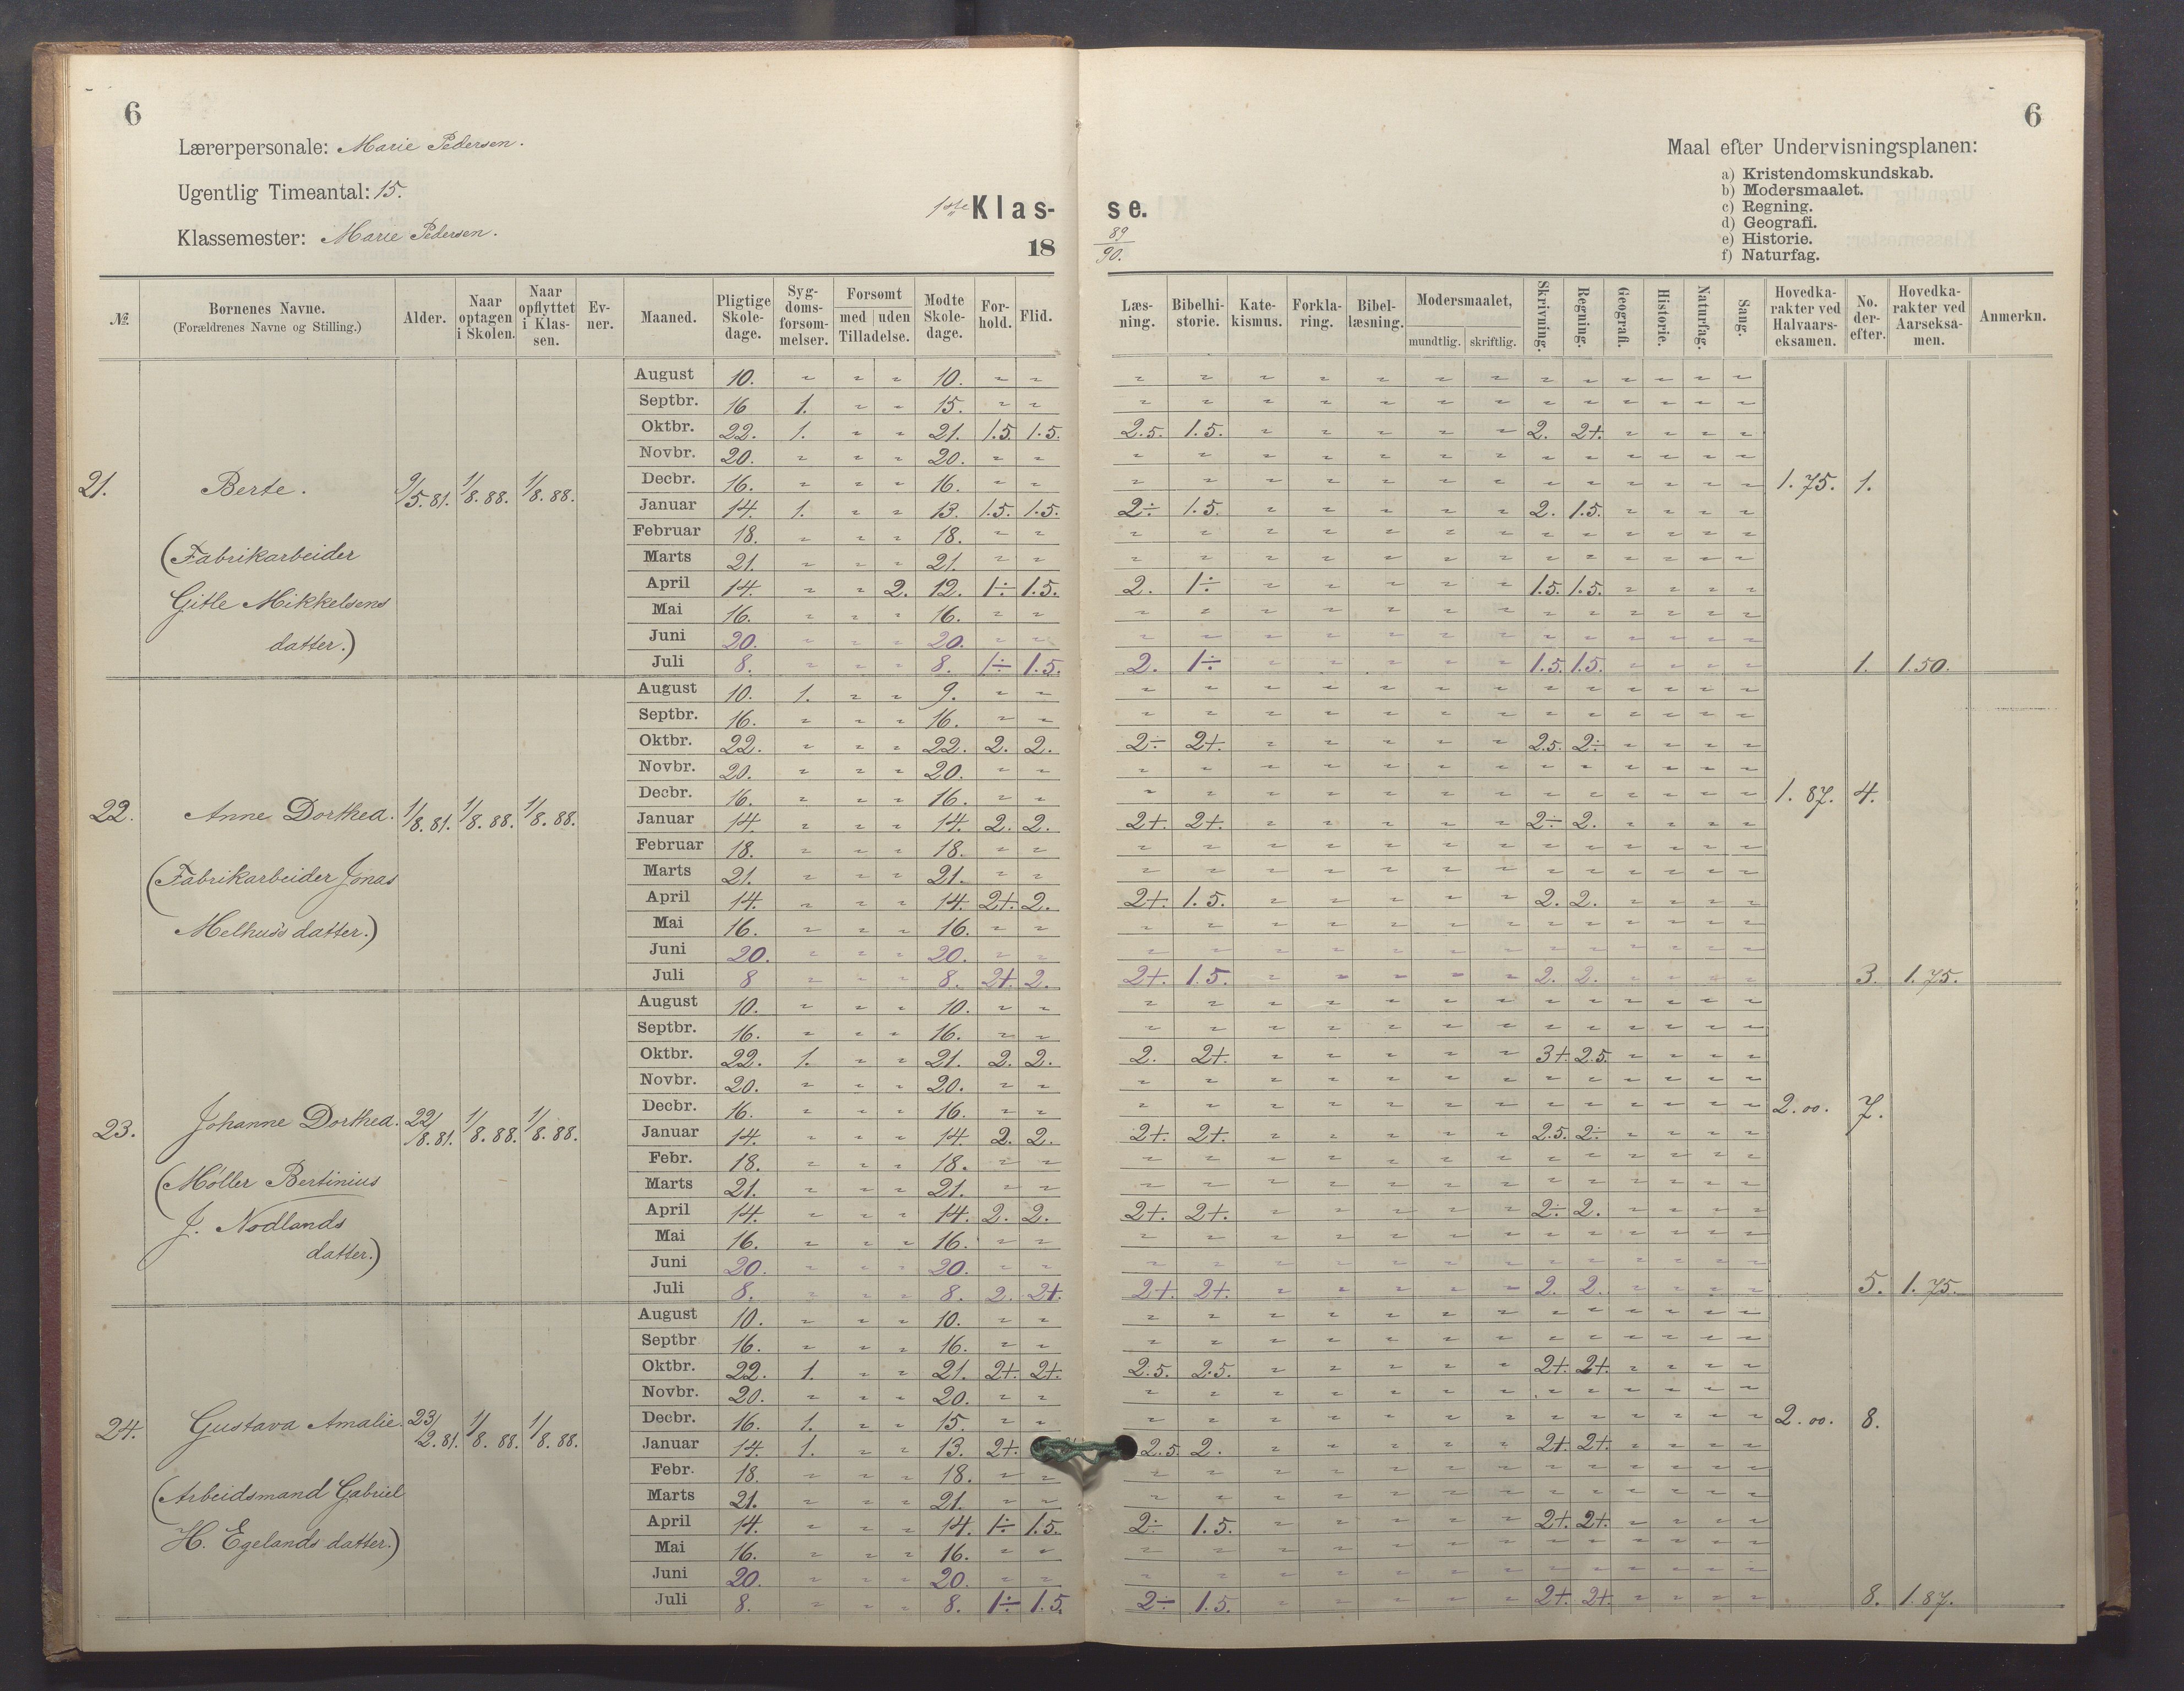 6
6
Lærerpersonale: Marie Pedersen.
Ugentlig Timeantal: 15.
Klassemester: Marie Pedersen.
1ste Klas- se.
18 89/90.
Maal efter Undervisningsplanen:
a) Kristendomskundskab.
b) Modersmaalet.
c) Regning.
d) Geografi.
e) Historie.
f) Naturfag.
№. Bornenes Navne. (Forældrenes Navne og Stilling.) Alder. Naar optagen i Skolen. Naar opflyttet i Klas-sen. Ev-ner. Maaned. Pligtige Skole-dage. Syg-doms-forsom-melser. Forsomt med uden Tilladelse. Modte Skole-dage. For-hold. Flid. Læs-ning. Bibelhi-storie. Kate-kismus. Forkla-ring. Bibel-læsning. Modersmaalet, mundtlig. skriftlig. Skrivning. Regning. Geografi. Historie. Naturfag. Sang. Hovedka-rakter ved Halvaars-eksamen. No. der-efter. Hovedka-rakter ved Aarseksa-men. Anmerkn.
21. Berte. 9/5.81. 1/8.88. 1/8.88.
(Fabrikarbeider
Gitle Mikkelsens
datter.)
August 10. " " " 10. " " " " " " " " " " " " " " "
Septbr. 16 1. " " 15. " " " " " " " " " " " " " " "
Oktbr. 22. 1. " " 21. 1.5. 1.5. 2.5. 1.5. " " " " " 2. 2+. " " " "
Novbr. 20. " " " 20. " " " " " " " " " " " " " " "
Decbr. 16. " " " 16. " " " " " " " " " " " " " " " 1.75. 1.
Januar 14. 1. " " 13. 1.5. 1.5. 2÷ 1.5. " " " " " 2. 1.5. " " " "
Februar 18. " " " 18. " " " " " " " " " " " " " " "
Marts 21. " " " 21. " " " " " " " " " " " " " " "
April 14. " " 2. 12. 1÷ 1.5. 2. 1÷ " " " " " 1.5. 1.5. " " " "
Mai 16. " " " 16. " " " " " " " " " " " " " " "
Juni 20. " " " 20. " " " " " " " " " " " " " " "
Juli 8. " " " 8. 1÷ 1.5. 2. 1÷ " " " " " 1.5. 1.5. " " " " 1. 1.50.
22. Anne Dorthea. 1/8.81. 1/8.88. 1/8.88.
(Fabrikarbeider Jonas
Melhus's datter.)
August 10. 1. " " 9. " " " " " " " " " " " " " " "
Septbr. 16. " " " 16. " " " " " " " " " " " " " " "
Oktbr. 22. " " " 22. 2. 2. 2÷ 2+. " " " " " 2.5. 2÷ " " " "
Novbr. 20. " " " 20. " " " " " " " " " " " " " " "
Decbr. 16. " " " 16. " " " " " " " " " " " " " " " 1.87. 4.
Januar 14. " " " 14. 2. 2. 2+. 2+. " " " " " 2÷ 2. " " " "
Februar 18. " " " 18. " " " " " " " " " " " " " " "
Marts 21. " " " 21. " " " " " " " " " " " " " " "
April 14. " " " 14. 2+. 2. 2+. 1.5. " " " " " 2. 2. " " " "
Mai 16. " " " 16. " " " " " " " " " " " " " " "
Juni 20. " " " 20. " " " " " " " " " " " " " " "
Juli 8 " " " 8. 2+. 2. 2+. 1.5. " " " " " 2. 2. " " " " 3. 1.75.
23. Johanne Dorthea. 22/8.81. 1/8.88. 1/8.88.
(Møller Bertinius
J. Nodlands
datter.)
August 10. " " " 10. " " " " " " " " " " " " " " "
Septbr. 16. " " " 16. " " " " " " " " " " " " " " "
Oktbr. 22. 1. " " 21. 2. 2. 2. 2+. " " " " " 3+. 2.5. " " " "
Novbr. 20. " " " 20. " " " " " " " " " " " " " " "
Decbr. 16. " " " 16. " " " " " " " " " " " " " " " 2.00. 7.
Januar 14. " " " 14. 2. 2. 2+. 2+. " " " " " 2.5. 2÷ " " " "
Febr. 18. " " " 18. " " " " " " " " " " " " " " "
Marts 21. " " " 21. " " " " " " " " " " " " " " "
April 14. " " " 14. 2. 2. 2+. 2+. " " " " " 2÷ 2. " " " "
Mai 16. " " " 16. " " " " " " " " " " " " " " "
Juni 20. " " " 20. " " " " " " " " " " " " " " "
Juli 8. " " " 8. 2. 2+. 2+. 2+. " " " " " 2. 2. " " " " 5. 1.75.
24. Gustava Amalie. 23/2.81. 1/8.88. 1/8.88.
(Arbeidsmand Gabriel
H. Egelands datter.)
August 10. " " " 10. " " " " " " " " " " " " " " "
Septbr 16. " " " 16. " " " " " " " " " " " " " " "
Oktbr. 22. 1. " " 21. 2+. 2+. 2.5. 2.5. " " " " " 2+. 2+. " " " "
Novbr. 20. " " " 20. " " " " " " " " " " " " " " "
Decbr. 16. 1. " " 15. " " " " " " " " " " " " " " " 2.00. 8.
Januar 14. 1. " " 13. 2+. 2.5. 2. " " " " " 2+. 2+. " " " "
Febr. 18. " " " 18. " " " " " " " " " " " " " " "
Marts 21. " " " 21. " " " " " " " " " " " " " " "
April 14. " " " 14. 1÷ 1.5. 2÷ 1.5. " " " " " 2+. 2+. " " " "
Mai 16. " " " 16. " " " " " " " " " " " " " " "
Juni 20. " " " 20. " " " " " " " " " " " " " " "
Juli 8. " " " 8. 1÷ 1.5. 2÷ 1.5. " " " " " 2+. 2+. " " " " 8. 1.87.